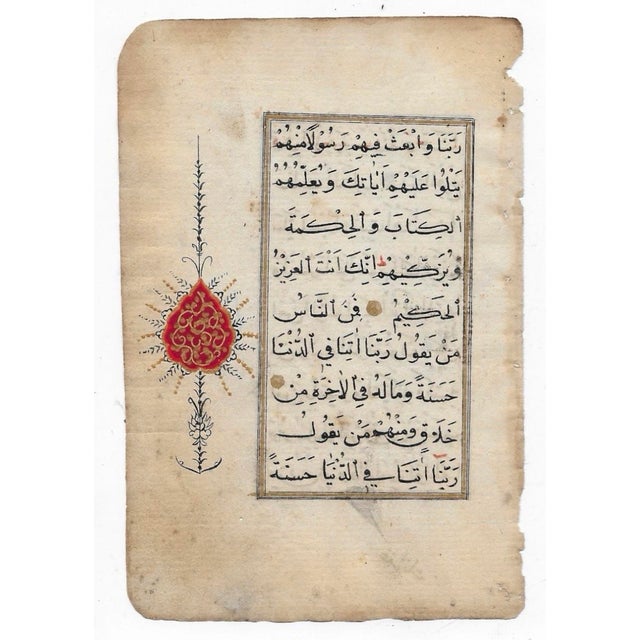 رَبَّنَا وَابْعَثْ فِيهِمْ رَسُولًا مِنْهُمْ
يَتْلُوا عَلَيْهِمْ اٰيَاتِكَ وَيُعَلِّمُهُمُ
الْكِتَابَ وَالْحِكْمَةَ
وَيُزَكِّيهِمْ اِنَّكَ اَنْتَ الْعَزِيزُ
الْحَكِيمُ فَمِنَ النَّاسِ
مَنْ يَقُولُ رَبَّنَا اٰتِنَا فِي الدُّنْيَا
حَسَنَةً وَمَا لَهُ فِي الْاٰخِرَةِ مِنْ
خَلَاقٍ وَمِنْهُمْ مَنْ يَقُولُ
رَبَّنَا اٰتِنَا فِي الدُّنْيَا حَسَنَةً